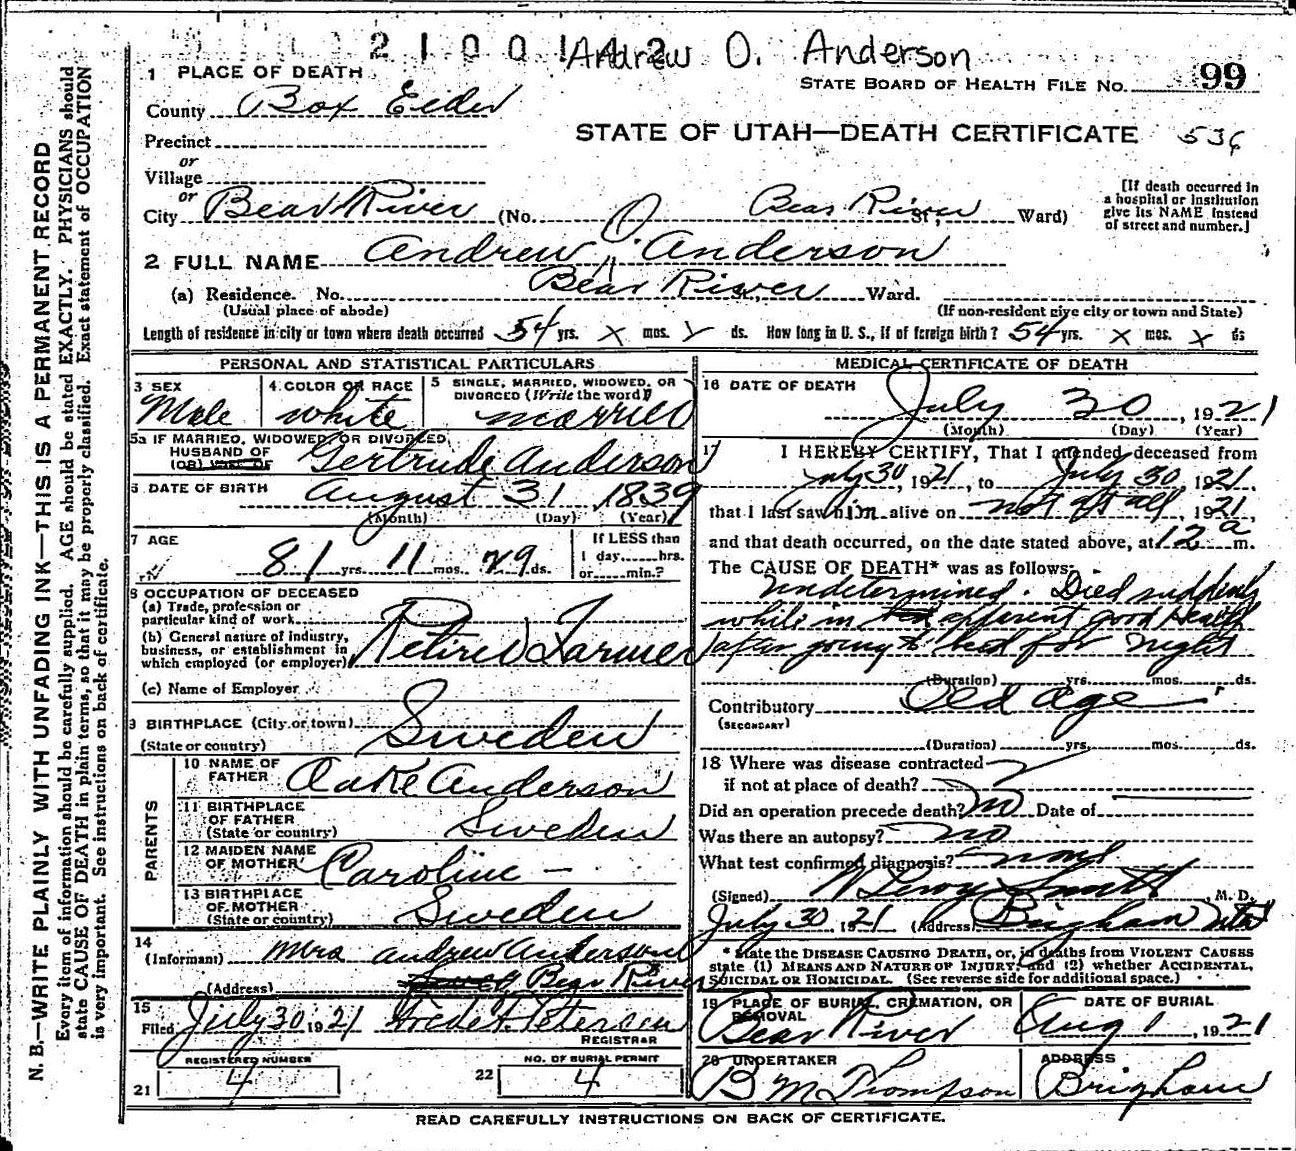 2 1 0 0 1 4 2 Andrew O. Anderson
1 PLACE OF DEATH
STATE BOARD OF HEALTH FILE NO. 99
County Box Elder
STATE OF UTAH—DEATH CERTIFICATE 536
Precinct
or
Village
or
City Bear River (No. Bear River St., Ward)
[If death occurred in
a hospital or institution
give its NAME instead
of street and number.]
2 FULL NAME Andrew O. Anderson
(a) Residence. No. Bear River St., Ward.
(Usual place of abode) (If non-resident give city or town and State)
Length of residence in city or town where death occurred 54 yrs. x mos. ds. How long in U. S., if of foreign birth? 54 yrs. x mos. x ds
PERSONAL AND STATISTICAL PARTICULARS
3 SEX
Male
4 COLOR OR RACE
white
5 SINGLE, MARRIED, WIDOWED, OR
DIVORCED (Write the word)
married
5a IF MARRIED, WIDOWED, OR DIVORCED
HUSBAND OF
(OR) WIFE OF Gertrude Anderson
6 DATE OF BIRTH August 31, 1839
(Month) (Day) (Year)
7 AGE
81 yrs. 11 mos. 29 ds.
If LESS than
1 day......hrs.
or......min.?
8 OCCUPATION OF DECEASED
(a) Trade, profession or
particular kind of work
(b) General nature of industry,
business, or establishment in
which employed (or employer) Retired Farmer
(c) Name of Employer
9 BIRTHPLACE (City or town)
(State or country) Sweden
PARENTS
10 NAME OF
FATHER Oake Anderson
11 BIRTHPLACE
OF FATHER
(State or country) Sweden
12 MAIDEN NAME
OF MOTHER Caroline —
13 BIRTHPLACE
OF MOTHER
(State or country) Sweden
14
(Informant) Mrs Andrew Anderson
(Address) Bear River
15
Filed July 30 1921 F. Petersen
REGISTRAR
REGISTERED NUMBER
21 4
NO. OF BURIAL PERMIT
22 4
MEDICAL CERTIFICATE OF DEATH
16 DATE OF DEATH
July 30, 1921
(Month) (Day) (Year)
17 I HEREBY CERTIFY, That I attended deceased from
July 30, 1921, to July 30, 1921,
that I last saw him alive on not at all, 1921,
and that death occurred, on the date stated above, at 12 a m.
The CAUSE OF DEATH* was as follows:
Undetermined. Died suddenly
while in apparent good health
after going to bed for night
(Duration) yrs. mos. ds.
Contributory Old age
(SECONDARY)
(Duration) yrs. mos. ds.
18 Where was disease contracted
if not at place of death?
Did an operation precede death? no Date of
Was there an autopsy? no
What test confirmed diagnosis? none
(Signed) W Leroy Smith, M. D.
July 30 1921 (Address) Brigham Utah
* State the DISEASE CAUSING DEATH, or, in deaths from VIOLENT CAUSES
state (1) MEANS AND NATURE OF INJURY; and (2) whether ACCIDENTAL,
SUICIDAL OR HOMICIDAL. (See reverse side for additional space.)
19 PLACE OF BURIAL, CREMATION, OR
REMOVAL
Bear River
DATE OF BURIAL
Aug 1, 1921
20 UNDERTAKER
B M Thompson
ADDRESS
Brigham
READ CAREFULLY INSTRUCTIONS ON BACK OF CERTIFICATE.
N. B.—WRITE PLAINLY WITH UNFADING INK—THIS IS A PERMANENT RECORD
Every item of information should be carefully supplied. AGE should be stated EXACTLY. PHYSICIANS should
state CAUSE OF DEATH in plain terms, so that it may be properly classified. Exact statement of OCCUPATION
is very important. See instructions on back of certificate.